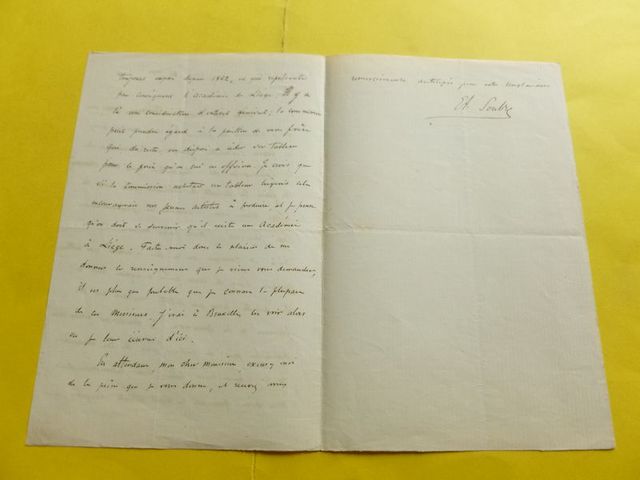 toujours depuis 1862, et qui représente
par conséquent l'Académie de Liège. Il y a
là une considération d'intérêt général, la commission
peut prendre égard à la position de mon frère
qui du reste est disposé à céder son tableau
pour le prix qu'on lui en offrira. Je crois que
si la Commission achetait un tableau liégeois cela
encouragerait nos jeunes artistes à produire et je pense
qu'on doit se souvenir qu'il existe une Académie
à Liège. Faites-moi donc le plaisir de me
donner les renseignements que je viens vous demander,
il est plus que probable que je connais la plupart
de ces Messieurs. J'irai à Bruxelles les voir alors
ou je leur écrirai d'ici.
En attendant mon cher Monsieur, excusez moi
de la peine que je vous donne, et recevez mes
remerciements anticipés pour votre
Et. Soubre